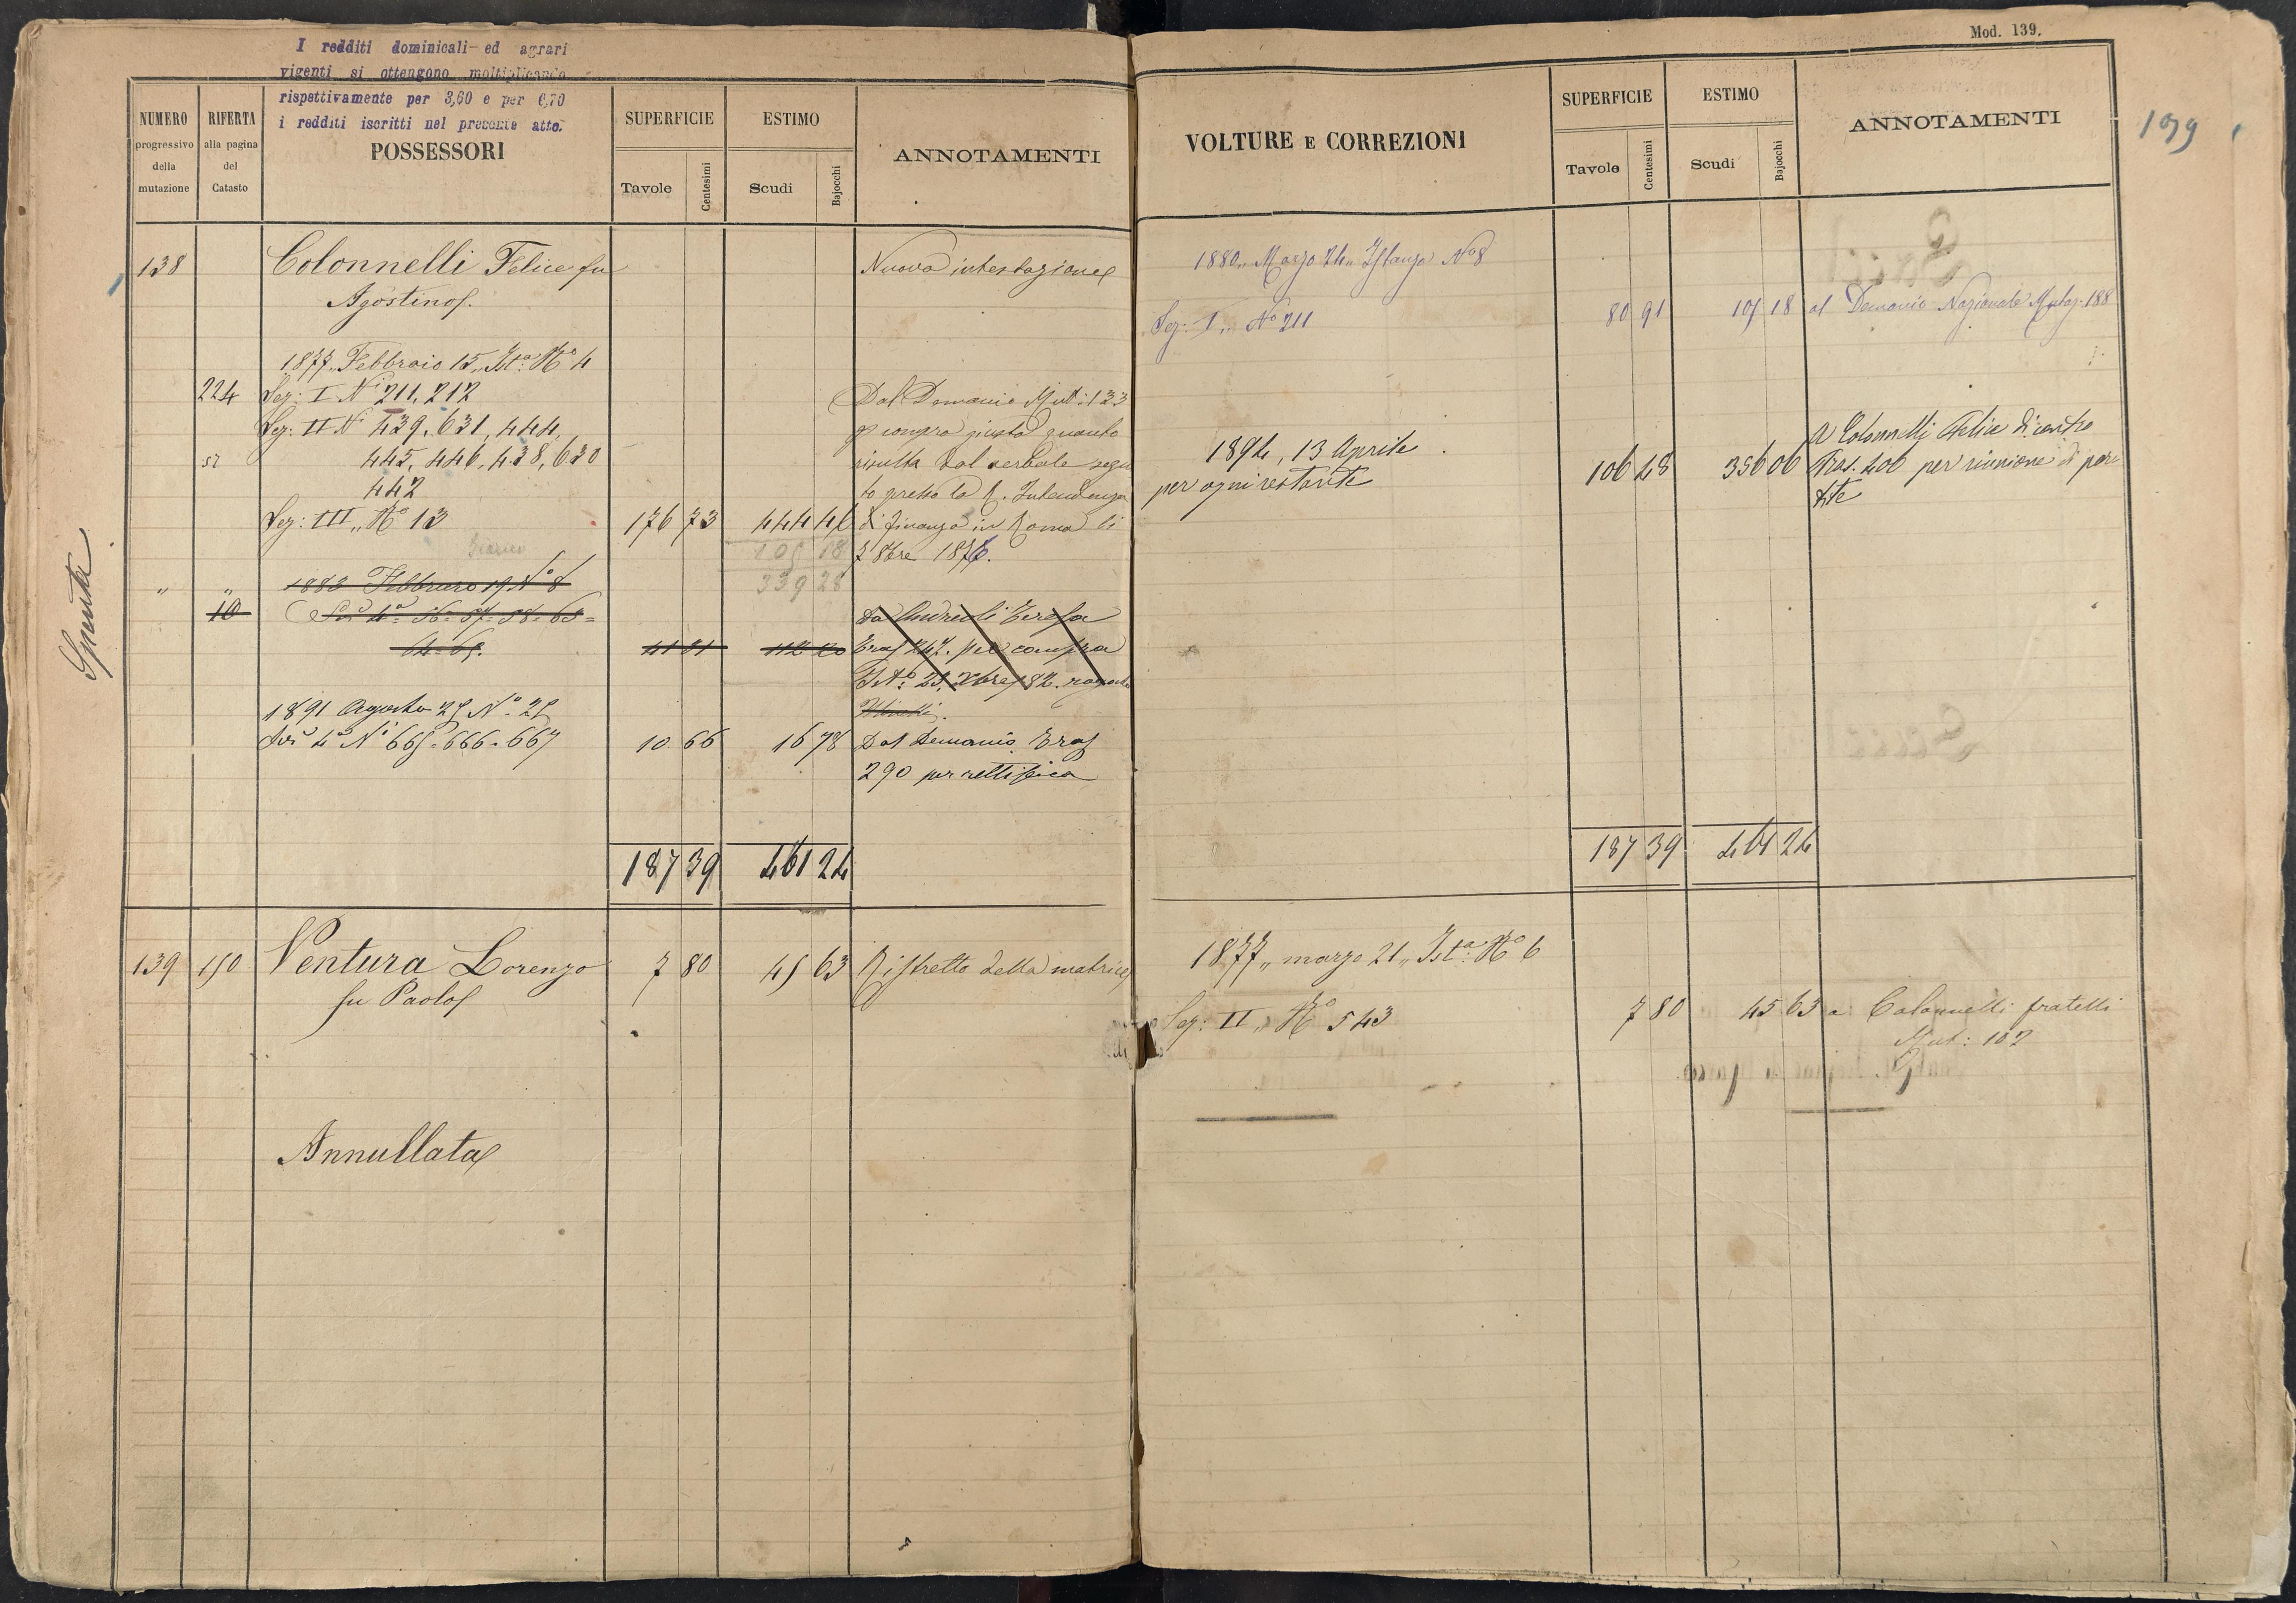 I redditi dominicali ed agrari
vigenti si ottengono moltiplicando
rispettivamente per 3,60 e per 6,70
i redditi iscritti nel presente atto.
NUMERO progressivo della mutazione
RIFERTA alla pagina del Catasto
POSSESSORI
SUPERFICIE
Tavole Centesimi
ESTIMO
Scudi Bajocchi
ANNOTAMENTI
138 Colonnelli Felice fu Nuova intestazione
Agostino
1877,, Febbraio 15,, Ist.a N.o 4
224 Sez: I N.i 211, 212 Dal Demanio Mut: 133
Sez: II N.i 439, 631, 444, p compra giusta quanto
445, 446, 438, 630 risulta dal verbale segui
442 to presso la R. Intendenza
Sez: III,, N.o 13 176 73 444 46 di finanza in Roma li
105 18 7 8bre 1876.
339 28
" " 1883 Febbraro 19 N.o 8
10 56 - 57 - 58 - 63 = Da Andreoli Teresa
64 - 65. 41 81 112 20 Tras 247. per compra
1891 Agosto 25 N.o 25
N.i 665 - 666 - 667 10 66 16 78 Dal Demanio Tras
290 per rettifica
187 39 461 24
139 150 Ventura Lorenzo 7 80 45 63 Ristretto della matrice
fu Paolo
Annullata
Spenta
Mod. 139.
VOLTURE E CORREZIONI
SUPERFICIE
Tavole Centesimi
ESTIMO
Scudi Bajocchi
ANNOTAMENTI
199
1880,, Marzo 24,, Istanza N.o 8
Sez: I,, N.o 211 80 91 105 18 al Demanio Nazionale Mutaz. 188
1894, 13 Aprile A Colonnelli Felice di contro
per ogni restante 106 48 356 06 Tras. 406 per riunione di par
tite
187 39 461 24
1877,, marzo 21,, Ist.a N.o 6
Sez: II,, N.o 543 7 80 45 63 a Colonnelli fratelli
Mut: 102